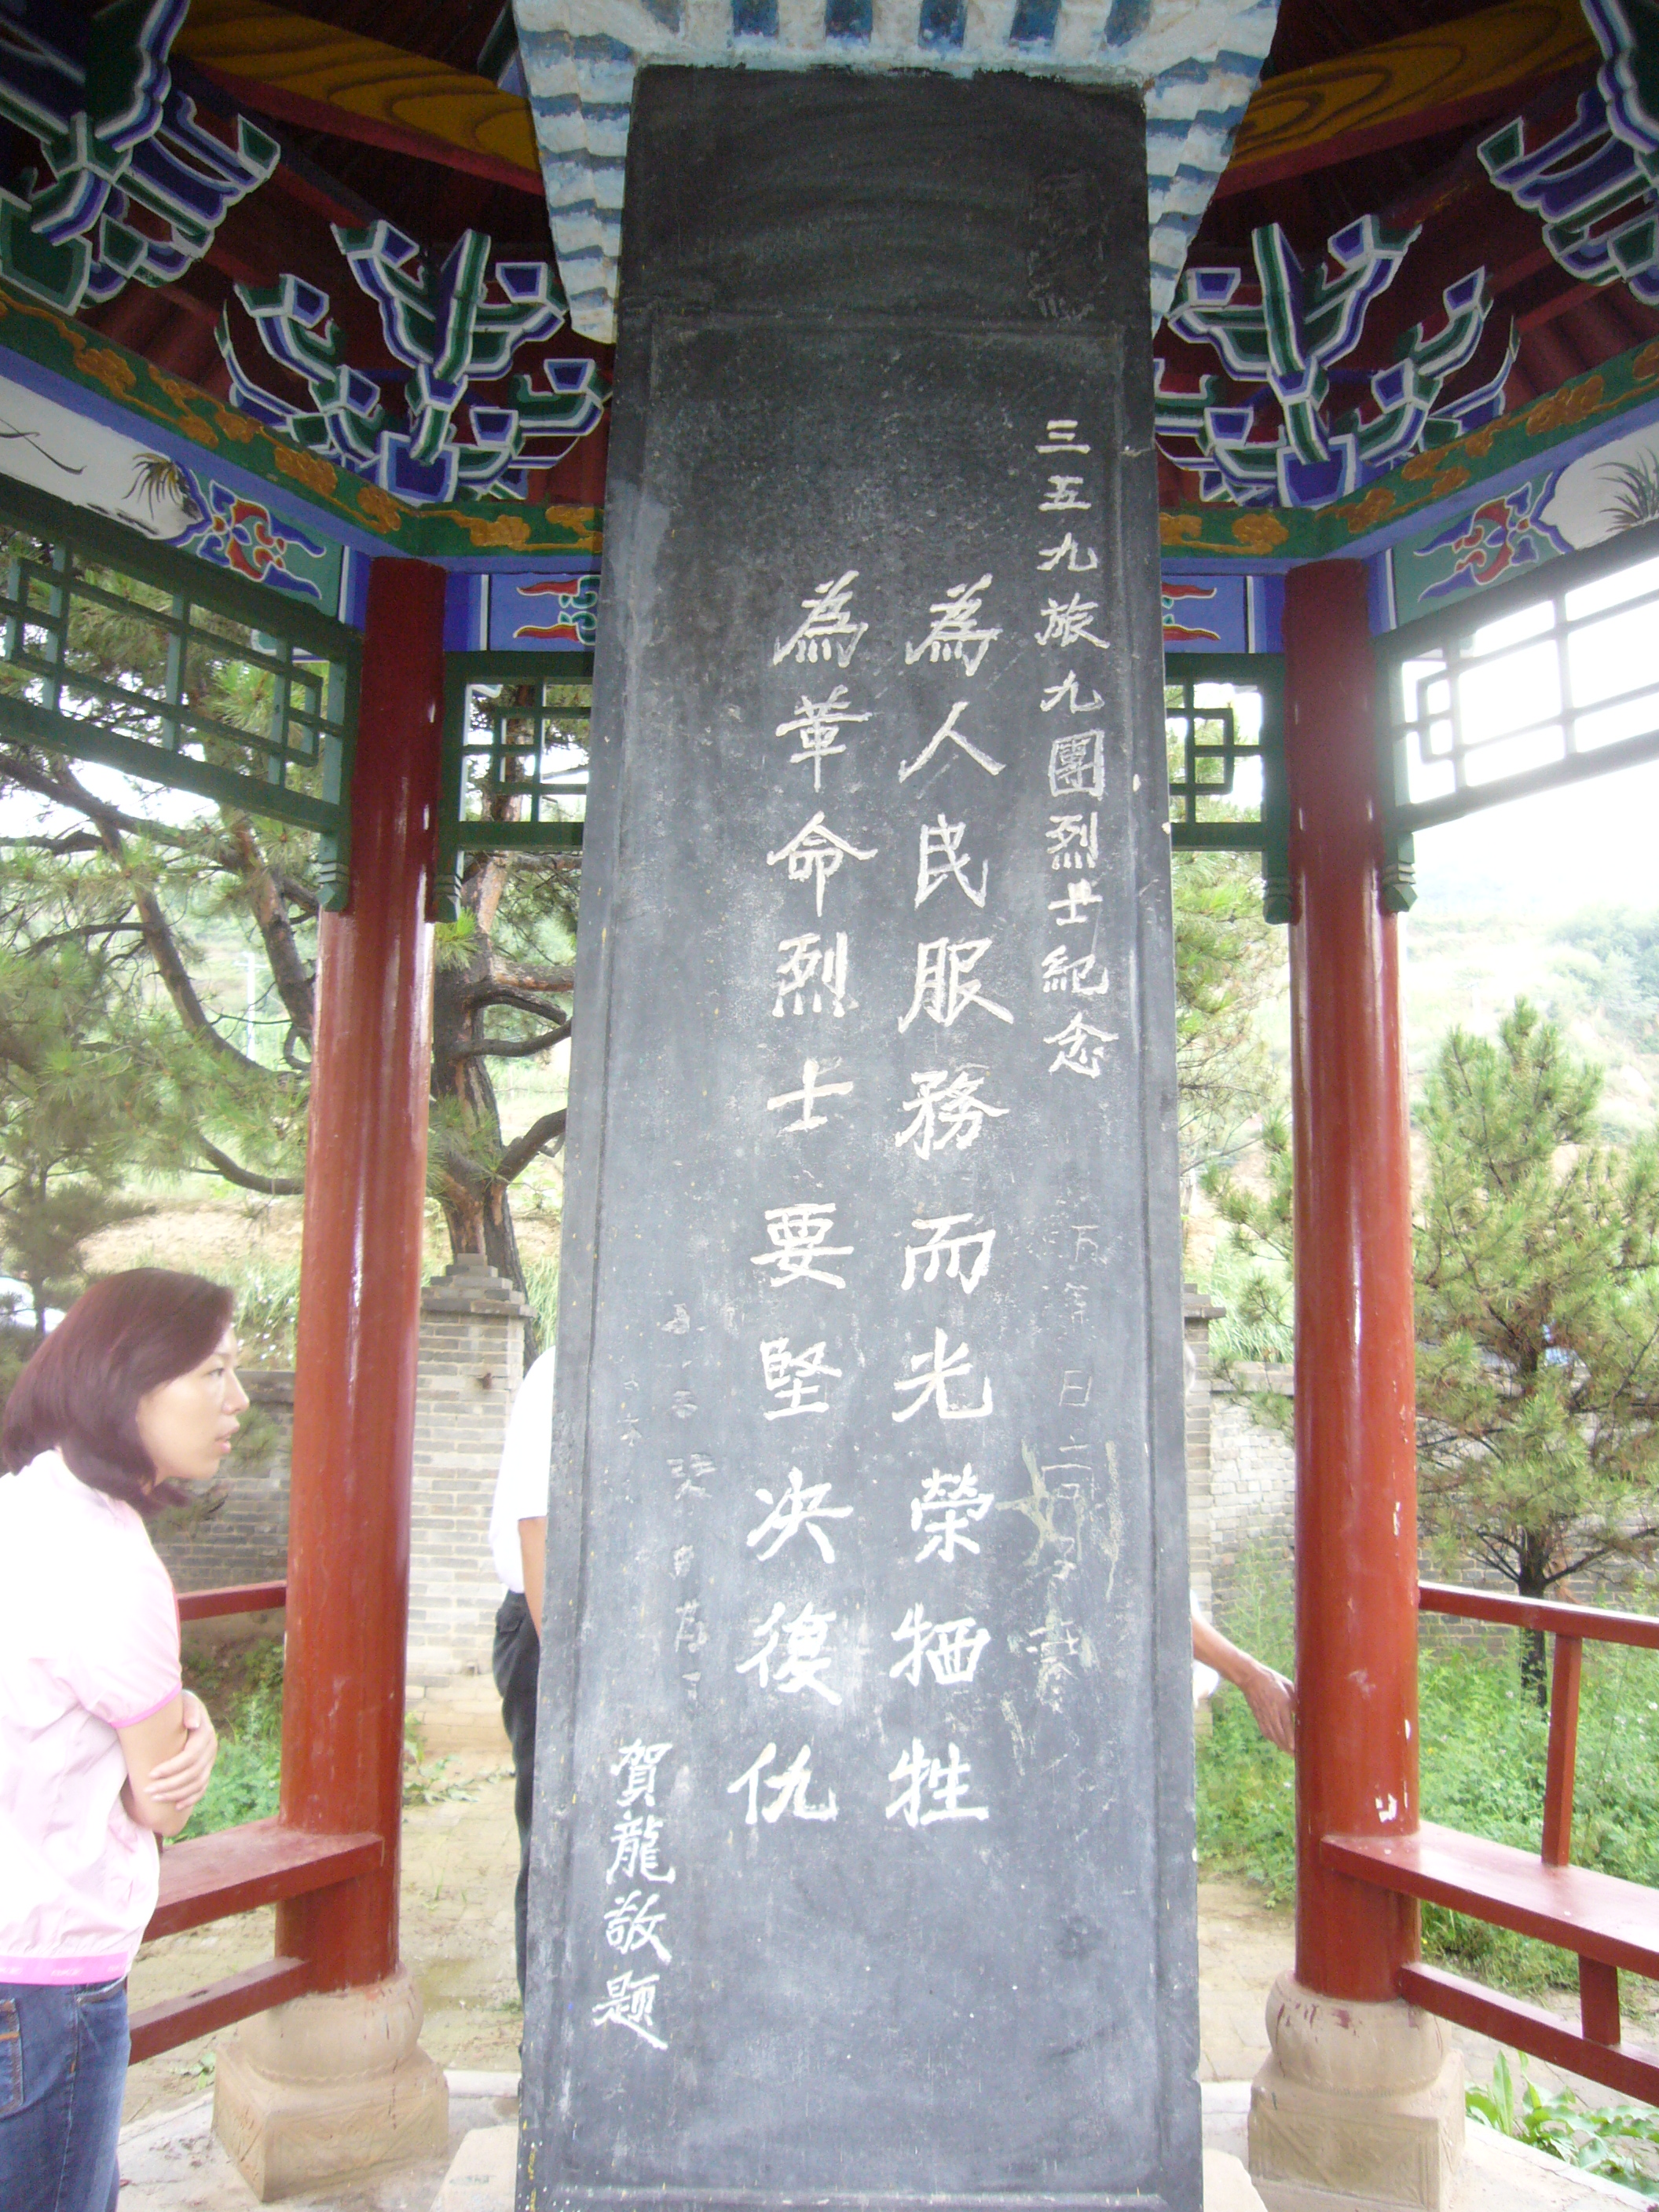 三五九旅九團烈士紀念
為人民服務而光榮牺牲
為革命烈士要堅决復仇
賀龍敬题